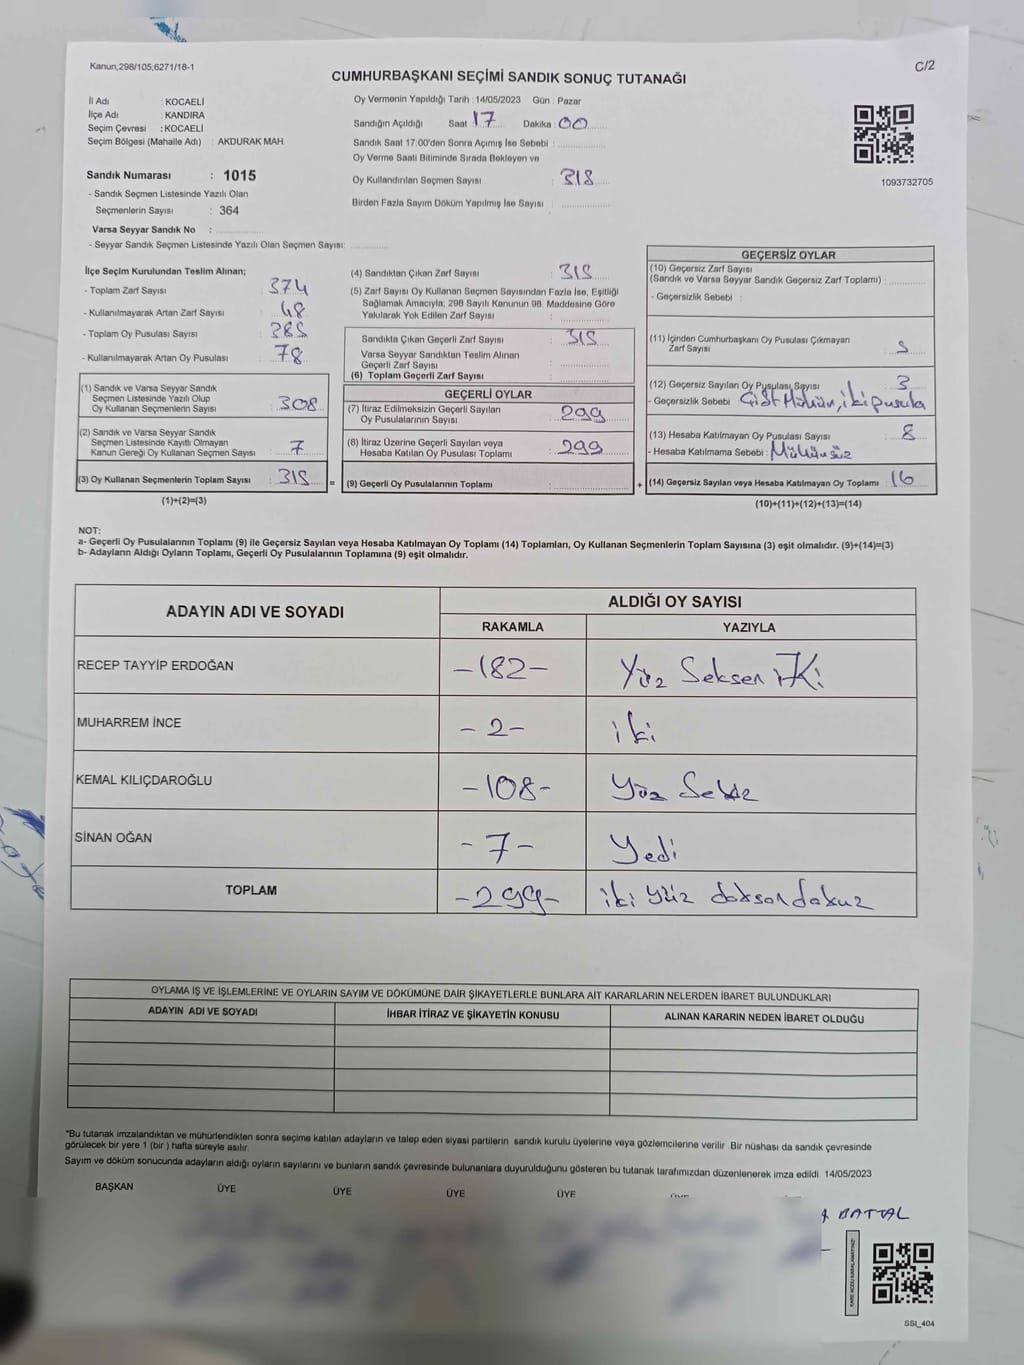 Kanun;298/105;6271/18-1
C/2
CUMHURBAŞKANI SEÇİMİ SANDIK SONUÇ TUTANAĞI
İl Adı : KOCAELİ
İlçe Adı : KANDIRA
Seçim Çevresi : KOCAELİ
Seçim Bölgesi (Mahalle Adı) : AKDURAK MAH
Sandık Numarası : 1015
- Sandık Seçmen Listesinde Yazılı Olan
Seçmenlerin Sayısı : 364
Varsa Seyyar Sandık No :
- Seyyar Sandık Seçmen Listesinde Yazılı Olan Seçmen Sayısı:
Oy Vermenin Yapıldığı Tarih : 14/05/2023 Gün : Pazar
Sandığın Açıldığı Saat 17 Dakika : 00
Sandık Saat 17:00'den Sonra Açımış İse Sebebi :
Oy Verme Saati Bitiminde Sırada Bekleyen ve
Oy Kullandırılan Seçmen Sayısı : 318
Birden Fazla Sayım Döküm Yapılmış İse Sayısı :
1093732705
İlçe Seçim Kurulundan Teslim Alınan;
- Toplam Zarf Sayısı : 374
- Kullanılmayarak Artan Zarf Sayısı : 48
- Toplam Oy Pusulası Sayısı : 385
- Kullanılmayarak Artan Oy Pusulası : 78
(1) Sandık ve Varsa Seyyar Sandık
Seçmen Listesinde Yazılı Olup
Oy Kullanan Seçmenlerin Sayısı : 308
(2) Sandık ve Varsa Seyyar Sandık
Seçmen Listesinde Kayıtlı Olmayan
Kanun Gereği Oy Kullanan Seçmen Sayısı : 7
(3) Oy Kullanan Seçmenlerin Toplam Sayısı : 315 =
(1)+(2)=(3)
(4) Sandıktan Çıkan Zarf Sayısı : 315
(5) Zarf Sayısı Oy Kullanan Seçmen Sayısından Fazla İse, Eşitliği
Sağlamak Amacıyla; 298 Sayılı Kanunun 98. Maddesine Göre
Yakılarak Yok Edilen Zarf Sayısı :
Sandıkta Çıkan Geçerli Zarf Sayısı : 315
Varsa Seyyar Sandıktan Teslim Alınan
Geçerli Zarf Sayısı :
(6) Toplam Geçerli Zarf Sayısı :
GEÇERLİ OYLAR
(7) İtiraz Edilmeksizin Geçerli Sayılan
Oy Pusulalarının Sayısı : 299
(8) İtiraz Üzerine Geçerli Sayılan veya
Hesaba Katılan Oy Pusulası Toplamı : 299
(9) Geçerli Oy Pusulalarının Toplamı : +
GEÇERSİZ OYLAR
(10) Geçersiz Zarf Sayısı
(Sandık ve Varsa Seyyar Sandık Geçersiz Zarf Toplamı) :
- Geçersizlik Sebebi :
(11) İçinden Cumhurbaşkanı Oy Pusulası Çıkmayan
Zarf Sayısı : 5
(12) Geçersiz Sayılan Oy Pusulası Sayısı : 3
- Geçersizlik Sebebi : Çift Mühür, iki pusula
(13) Hesaba Katılmayan Oy Pusulası Sayısı : 8
- Hesaba Katılmama Sebebi : Mühürsüz
(14) Geçersiz Sayılan veya Hesaba Katılmayan Oy Toplamı : 16
(10)+(11)+(12)+(13)=(14)
NOT:
a- Geçerli Oy Pusulalarının Toplamı (9) ile Geçersiz Sayılan veya Hesaba Katılmayan Oy Toplamı (14) Toplamları, Oy Kullanan Seçmenlerin Toplam Sayısına (3) eşit olmalıdır. (9)+(14)=(3)
b- Adayların Aldığı Oyların Toplamı, Geçerli Oy Pusulalarının Toplamına (9) eşit olmalıdır.
ADAYIN ADI VE SOYADI
ALDIĞI OY SAYISI
RAKAMLA YAZIYLA
RECEP TAYYİP ERDOĞAN -182- Yüz Seksen İKi
MUHARREM İNCE -2- iki
KEMAL KILIÇDAROĞLU -108- Yüz Sekiz
SİNAN OĞAN -7- Yedi
TOPLAM -299- iki yüz doksan dokuz
OYLAMA İŞ VE İŞLEMLERİNE VE OYLARIN SAYIM VE DÖKÜMÜNE DAİR ŞİKAYETLERLE BUNLARA AİT KARARLARIN NELERDEN İBARET BULUNDUKLARI
ADAYIN ADI VE SOYADI İHBAR İTİRAZ VE ŞİKAYETİN KONUSU ALINAN KARARIN NEDEN İBARET OLDUĞU
*Bu tutanak imzalandıktan ve mühürlendikten sonra seçime katılan adayların ve talep eden siyasi partilerin sandık kurulu üyelerine veya gözlemcilerine verilir. Bir nüshası da sandık çevresinde
görülecek bir yere 1 (bir) hafta süreyle asılır.
Sayım ve döküm sonucunda adayların aldığı oyların sayılarını ve bunların sandık çevresinde bulunanlara duyurulduğunu gösteren bu tutanak tarafımızdan düzenlenerek imza edildi. 14/05/2023
BAŞKAN ÜYE ÜYE ÜYE ÜYE
BATTAL
SSI_404